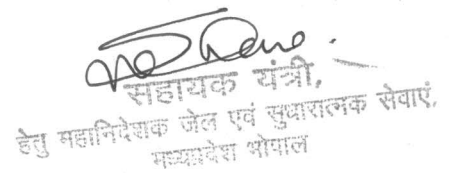 सहायक यंत्री,
हेतु महानिदेशक जेल एवं सुधारात्मक सेवाएं,
मध्यप्रदेश भोपाल